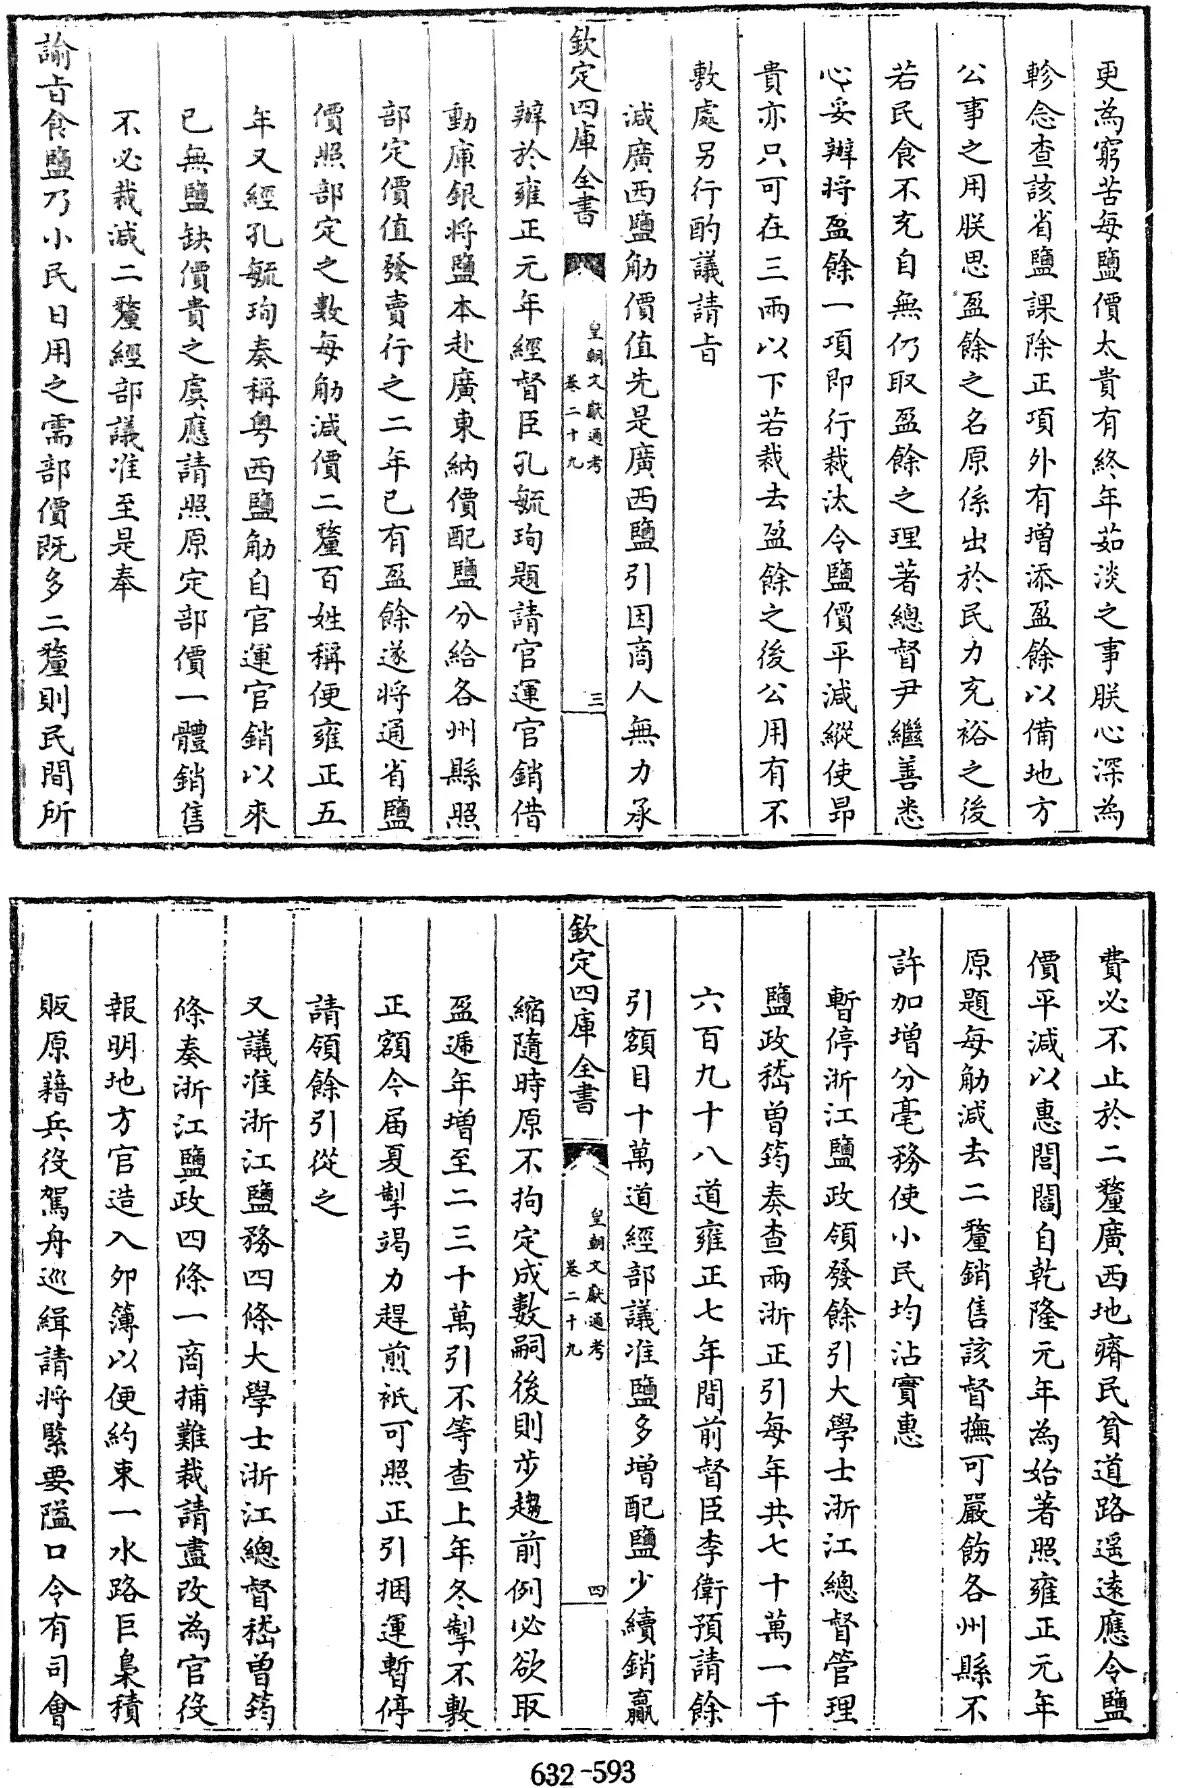 更為窮苦每鹽價太貴有終年茹淡之事朕心深為
軫念查該省鹽課除正項外有增添盈餘以備地方
公事之用朕思盈餘之名原係出於民力充裕之後
若民食不充自無仍取盈餘之理著總督尹繼善悉
心妥辦將盈餘一項即行裁汰令鹽價平減縱使昂
貴亦只可在三兩以下若裁去盈餘之後公用有不
敷處另行酌議請旨
減廣西鹽觔價值先是廣西鹽引因商人無力承
欽定四庫全書
皇朝文獻通考
卷二十九
三
辦於雍正元年經督臣孔毓珣題請官運官銷借
動庫銀將鹽本赴廣東納價配鹽分給各州縣照
部定價值發賣行之二年已有盈餘遂將通省鹽
價照部定之數每觔減價二釐百姓稱便雍正五
年又經孔毓珣奏稱粤西鹽觔自官運官銷以來
已無鹽缺價貴之虞應請照原定部價一體銷售
不必裁減二釐經部議准至是奉
諭旨食鹽乃小民日用之需部價既多二釐則民間所
費必不止於二釐廣西地瘠民貧道路遥遠應令鹽
價平減以惠閭閻自乾隆元年為始著照雍正元年
原題每觔減去二釐銷售該督撫可嚴飭各州縣不
許加增分毫務使小民均沾實惠
暫停浙江鹽政領發餘引大學士浙江總督管理
鹽政嵇曾筠奏查兩浙正引每年共七十萬一千
六百九十八道雍正七年間前督臣李衛預請餘
引額目十萬道經部議准鹽多增配鹽少續銷贏
欽定四庫全書
皇朝文獻通考
卷二十九
四
縮隨時原不拘定成數嗣後則步趨前例必欲取
盈遞年增至二三十萬引不等查上年冬掣不敷
正額今届夏掣竭力趕煎祇可照正引捆運暫停
請領餘引從之
又議准浙江鹽務四條大學士浙江總督嵇曾筠
條奏浙江鹽政四條一商捕難裁請盡改為官役
報明地方官造入卯簿以便約束一水路巨梟積
販原藉兵役駕舟巡緝請將緊要隘口令有司會
632-593